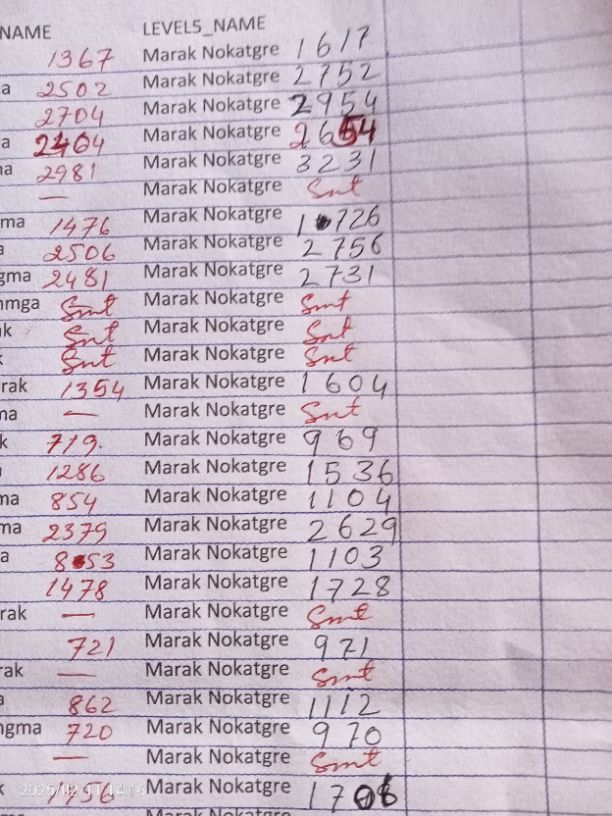 NAME LEVEL5_NAME
1367 Marak Nokatgre 1617
a 2502 Marak Nokatgre 2752
2704 Marak Nokatgre 2954
a 2404 Marak Nokatgre 2654
na 2981 Marak Nokatgre 3231
— Marak Nokatgre Smt
ma 1476 Marak Nokatgre 1726
a 2506 Marak Nokatgre 2756
gma 2481 Marak Nokatgre 2731
nmga Smt Marak Nokatgre Smt
k Smt Marak Nokatgre Smt
k Smt Marak Nokatgre Smt
rak 1354 Marak Nokatgre 1604
na — Marak Nokatgre Smt
k 719. Marak Nokatgre 969
1286 Marak Nokatgre 1536
ma 854 Marak Nokatgre 1104
ma 2379 Marak Nokatgre 2629
a 853 Marak Nokatgre 1103
1478 Marak Nokatgre 1728
rak — Marak Nokatgre Smt
721 Marak Nokatgre 971
rak — Marak Nokatgre Smt
a 862 Marak Nokatgre 1112
ngma 720 Marak Nokatgre 970
— Marak Nokatgre Smt
k 1456 Marak Nokatgre 1706
Marak Nokatgre